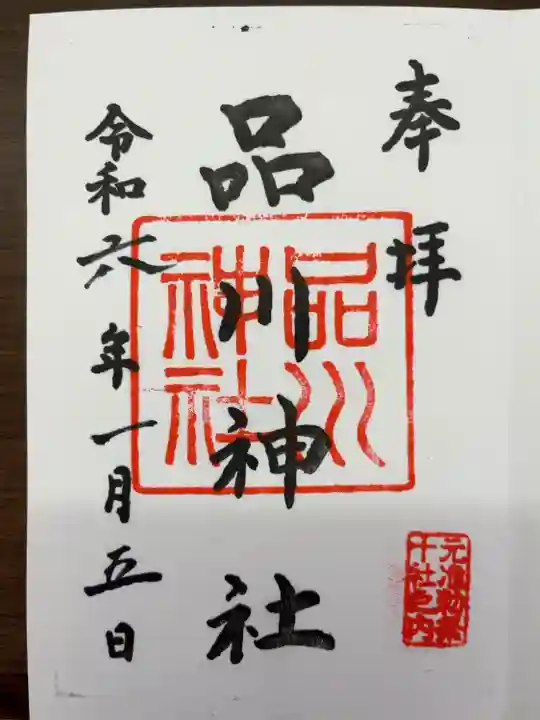 奉拝
品川神社
品川
神社
令和六年一月五日
元准勅祭
十社之内